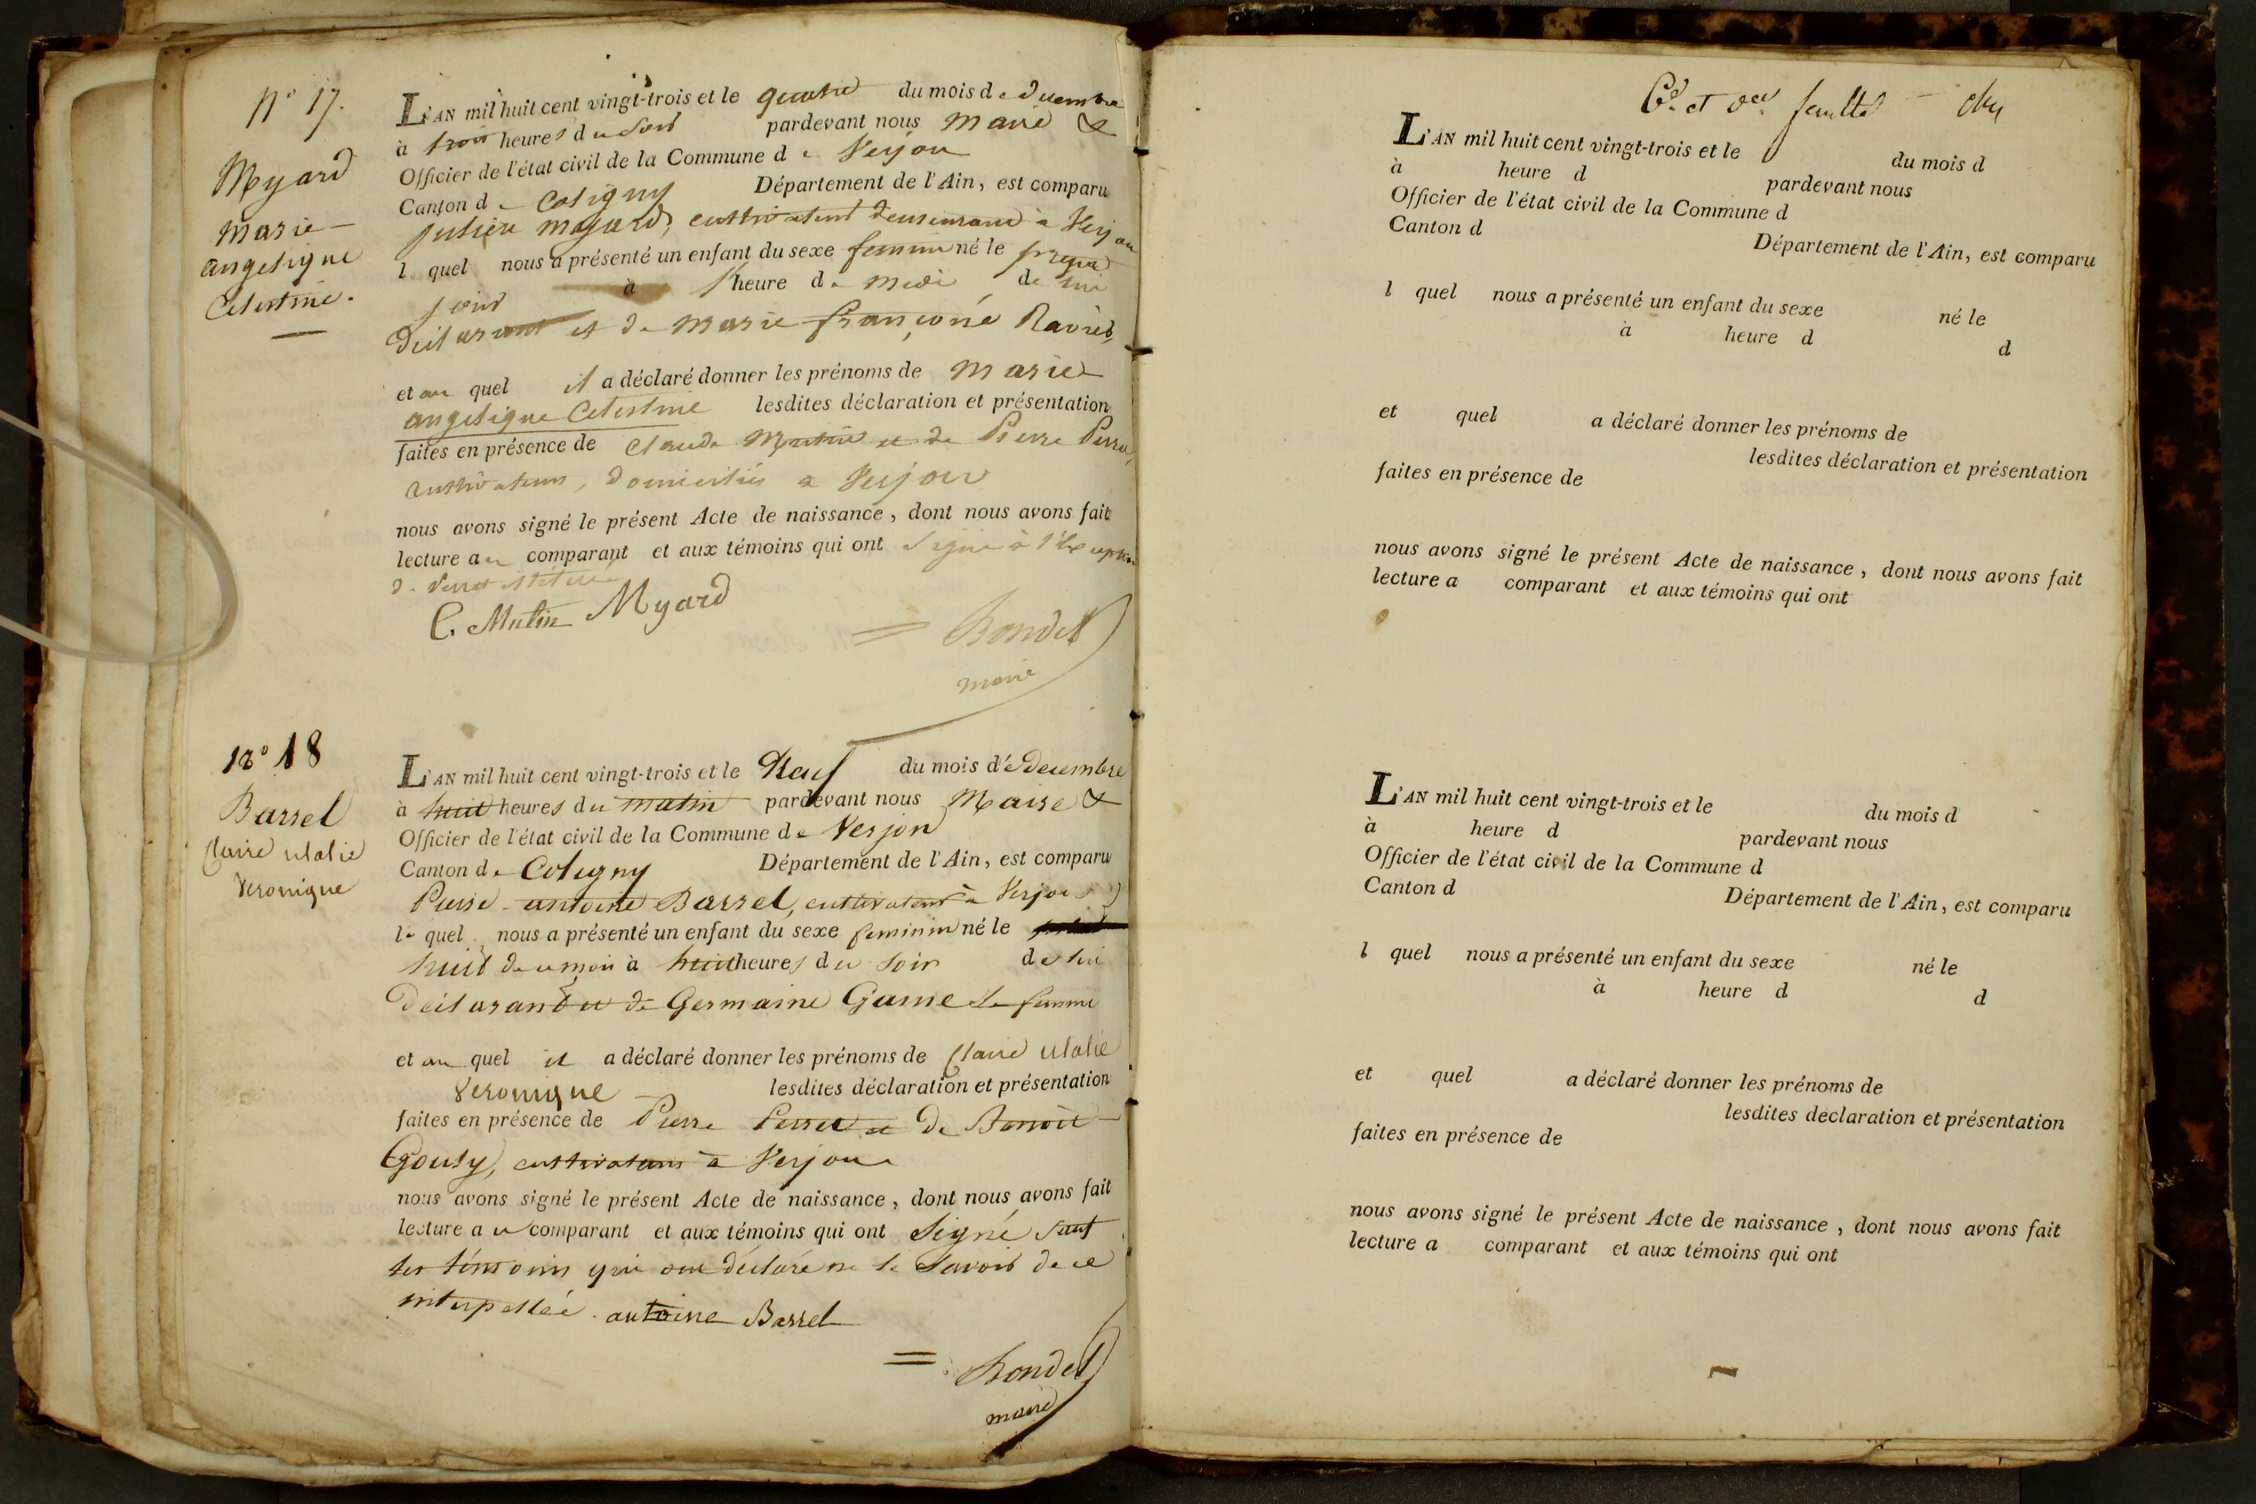 N° 17.
Myard
Marie
angelique
Celestine.
L'AN mil huit cent vingt-trois et le quatre du mois de decembre
à trois heures du soir pardevant nous Maire &
Officier de l'état civil de la Commune de Verjon
Canton de Coligny Département de l'Ain, est comparu
myard, cultivateur demeurant à Verjon
lequel nous a présenté un enfant du sexe feminin né le
jour à 1 heure de midi de lui
declarant et de marie françoise
et au quel il a déclaré donner les prénoms de Marie
angelique Celestine lesdites déclaration et présentation
faites en présence de Claude Mutin et de Pierre Perret,
cultivateurs, domiciliés a Verjon
nous avons signé le présent Acte de naissance, dont nous avons fait
lecture au comparant et aux témoins qui ont signé à l'exception
de Perret
C. Mutin Myard
Rondet
maire
N° 18
Barret
Claire ulalie
Veronique
L'AN mil huit cent vingt-trois et le Neuf du mois de decembre
à huit heures du matin pardevant nous Maire &
Officier de l'état civil de la Commune de Verjon
Canton de Coligny Département de l'Ain, est comparu
Pierre antoine Barret, cultivateur à Verjon
lequel nous a présenté un enfant du sexe feminin né le
huit de ce mois à huit heures du soir de lui
declarant et de Germaine Game sa femme
et au quel il a déclaré donner les prénoms de Claire ulalie
Veronique lesdites déclaration et présentation
faites en présence de Pierre Perret et de Benoit
Gouly, cultivateurs a Verjon
nous avons signé le présent Acte de naissance, dont nous avons fait
lecture au comparant et aux témoins qui ont signé sauf
les témoins qui ont déclaré ne le savoir de ce
interpellé. antoine Barret
Rondet
maire
et feuillet
L'AN mil huit cent vingt-trois et le du mois d
à heure d pardevant nous
Officier de l'état civil de la Commune d
Canton d Département de l'Ain, est comparu
l quel nous a présenté un enfant du sexe né le
à heure d d
et quel a déclaré donner les prénoms de
lesdites déclaration et présentation
faites en présence de
nous avons signé le présent Acte de naissance, dont nous avons fait
lecture a comparant et aux témoins qui ont
L'AN mil huit cent vingt-trois et le du mois d
à heure d pardevant nous
Officier de l'état civil de la Commune d
Canton d Département de l'Ain, est comparu
l quel nous a présenté un enfant du sexe né le
à heure d d
et quel a déclaré donner les prénoms de
lesdites declaration et présentation
faites en présence de
nous avons signé le présent Acte de naissance, dont nous avons fait
lecture a comparant et aux témoins qui ont